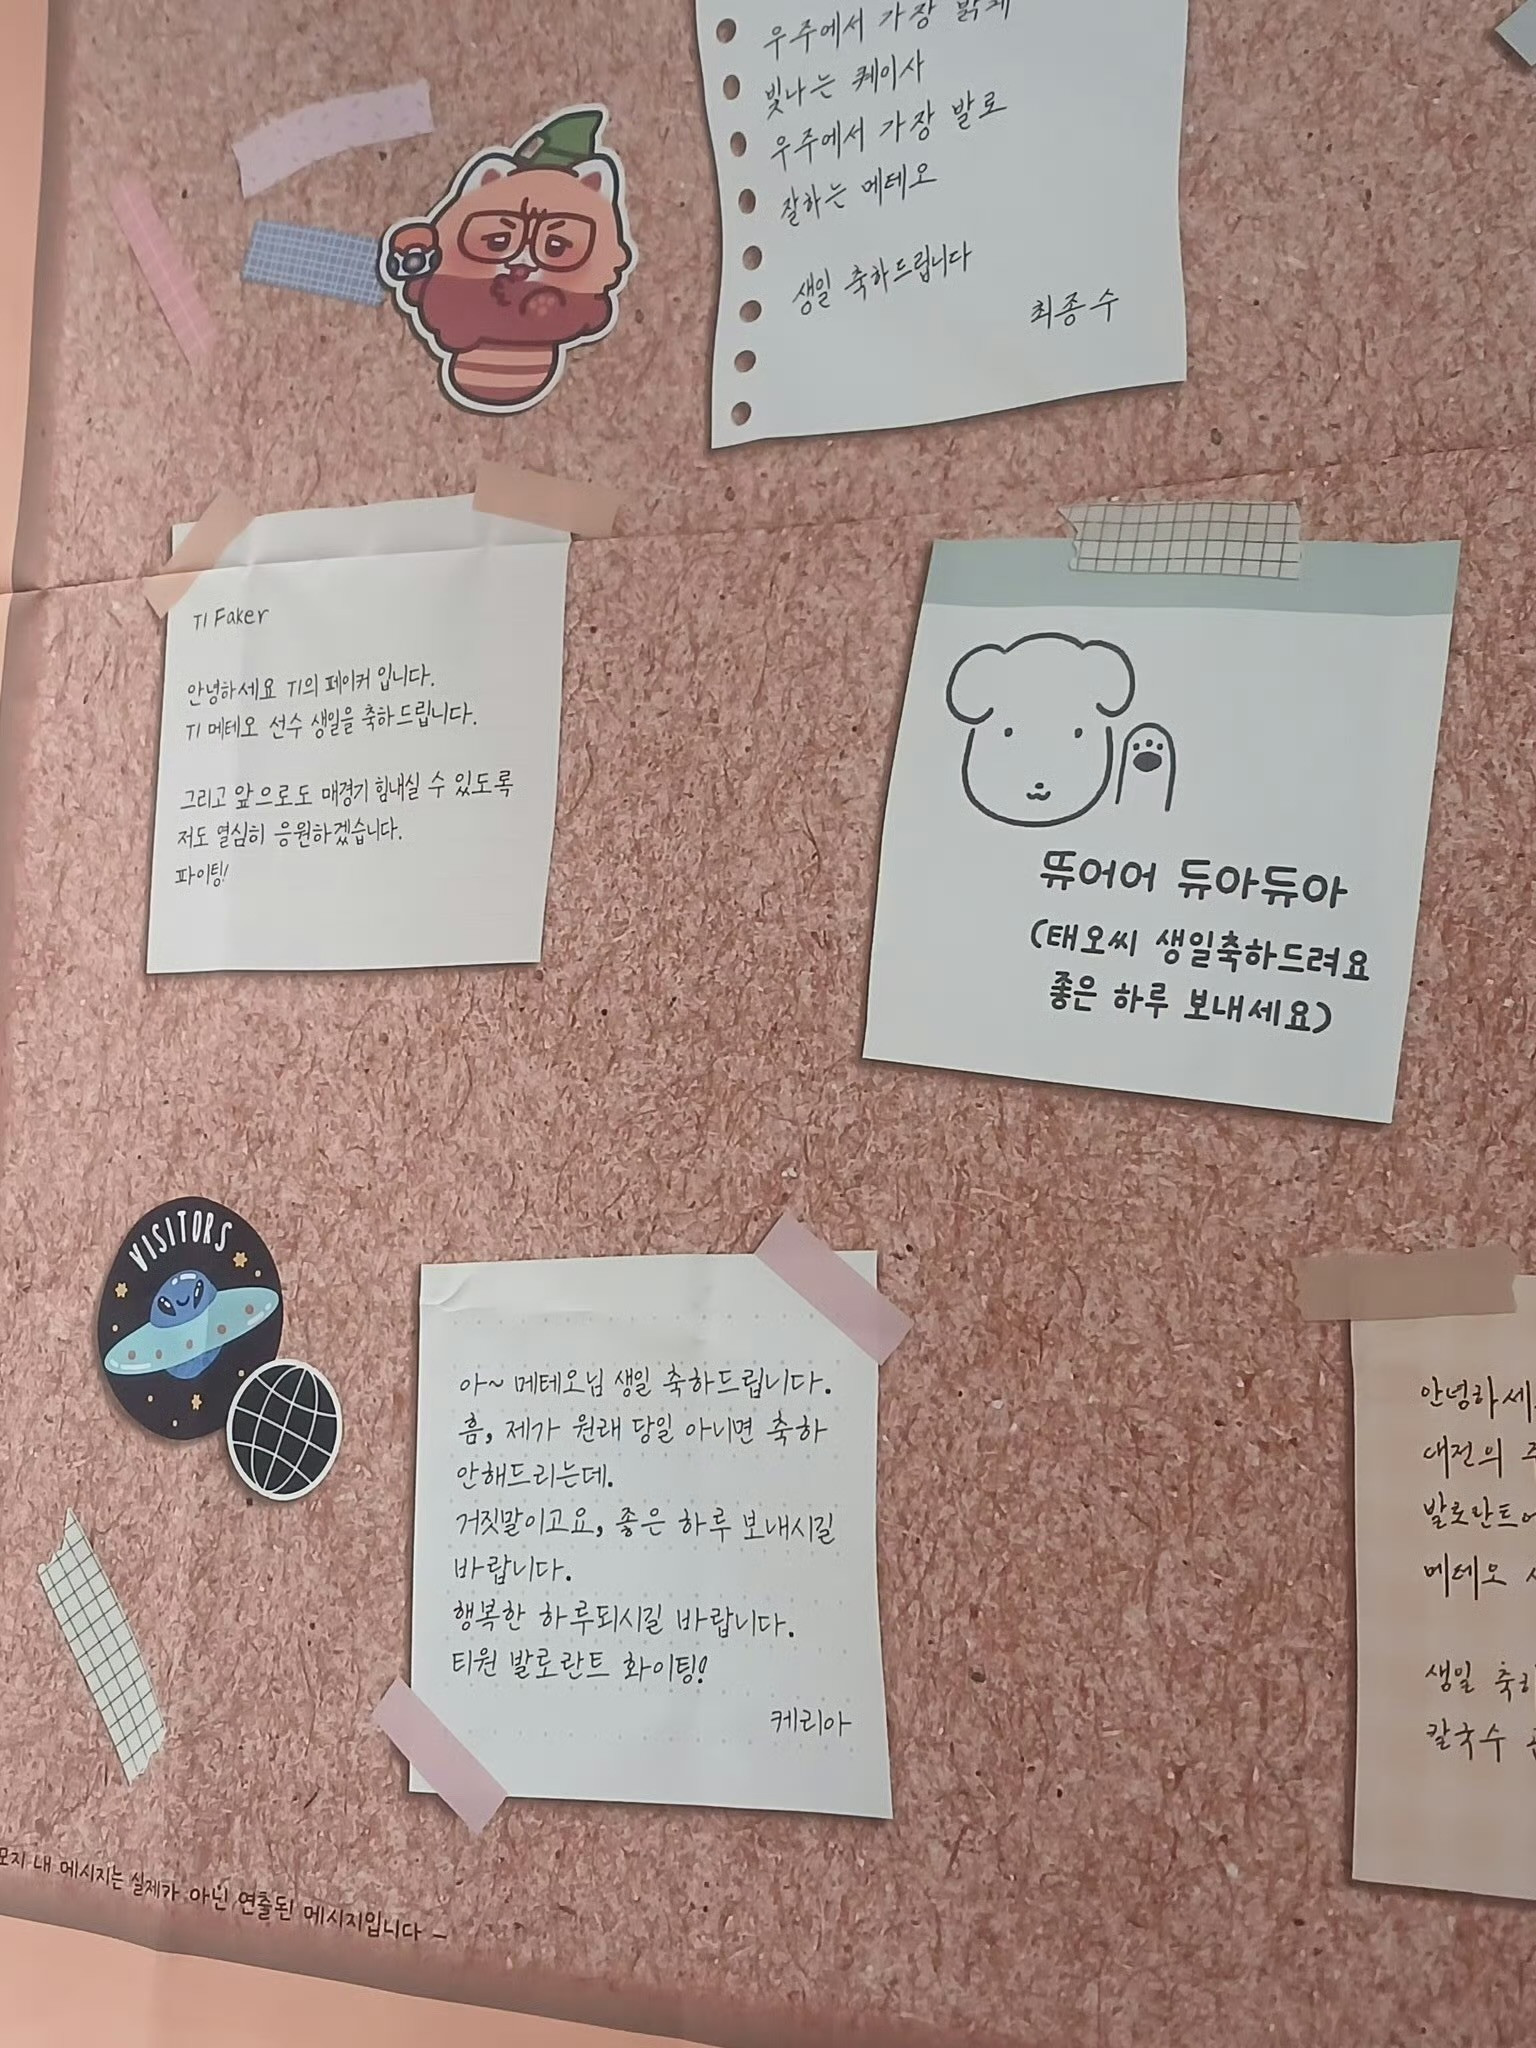 우주에서 가장 밝게
빛나는 퀘이사
우주에서 가장 발로
잘하는 메테오
생일 축하드립니다
최종수
T1 Faker
안녕하세요 T1의 페이커 입니다.
T1 메테오 선수 생일을 축하드립니다.
그리고 앞으로도 매경기 힘내실 수 있도록
저도 열심히 응원하겠습니다.
파이팅!
뜌어어 듀아듀아
(태오씨 생일축하드려요
좋은 하루 보내세요)
VISITORS
아~ 메테오님 생일 축하드립니다.
흠, 제가 원래 당일 아니면 축하
안해드리는데.
거짓말이고요, 좋은 하루 보내시길
바랍니다.
행복한 하루되시길 바랍니다.
티원 발로란트 화이팅!
케리아
안녕하세
대전의
발로란트
메테오
생일 축하
칼국수
내 메시지는 실제가 아닌 연출된 메시지입니다 -